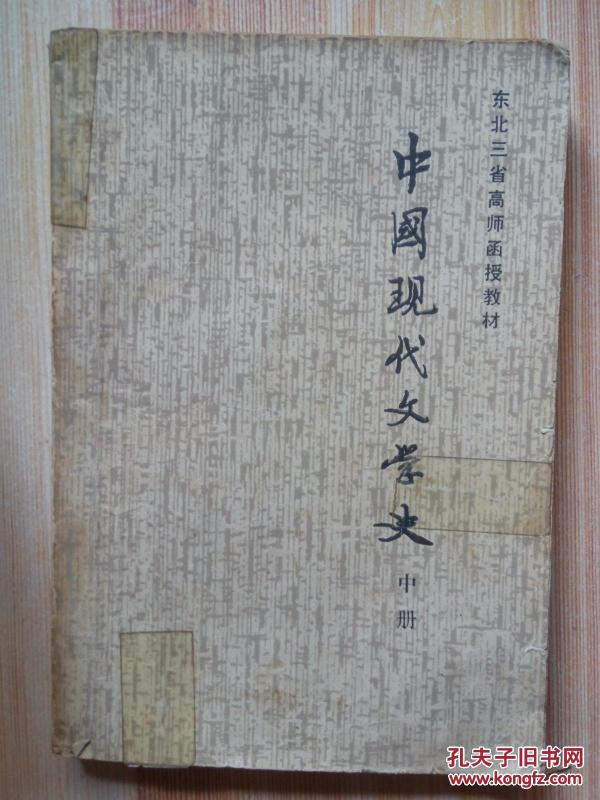 东北三省高师函授教材
中國现代文学史
中册
孔夫子旧书网
www.kongfz.com